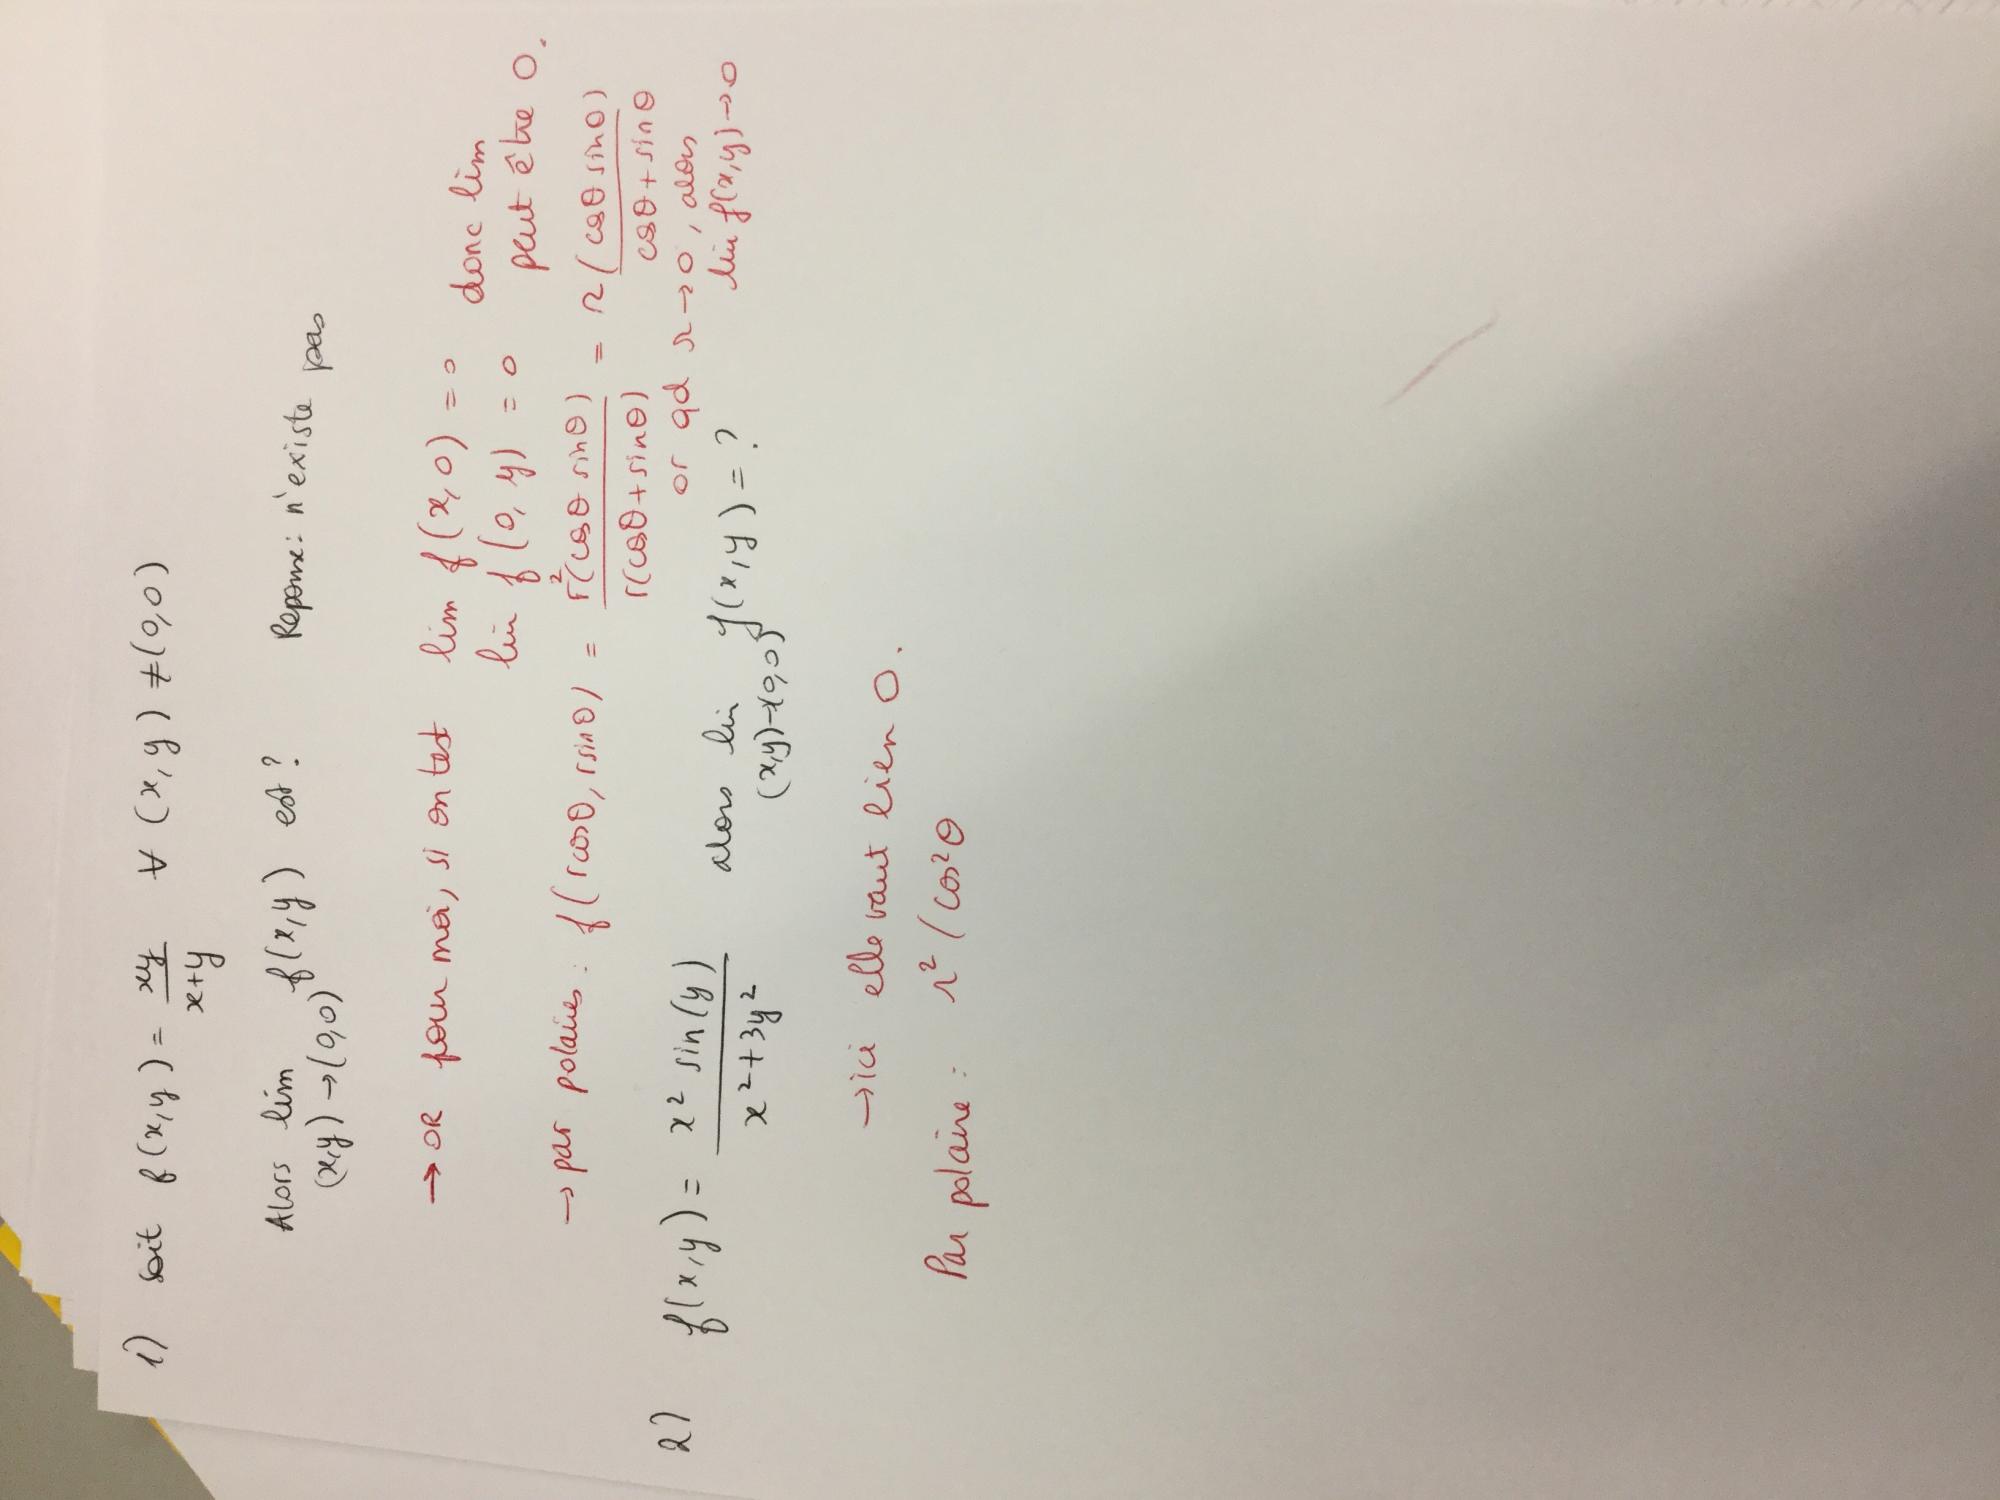 1) soit f(x,y) = xy/x+y ∀ (x,y) ≠ (0,0)
Alors lim (x,y)→(0,0) f(x,y) est? Reponse: n'existe pas
→ OR pour moi, si on test lim f(x,0) = 0 donc lim
lim f(0,y) = 0 peut être 0.
→ par polaires: f(rcosθ, rsinθ) = r²(cosθ sinθ)/r(cosθ+sinθ) = r(cosθ sinθ)/cosθ+sinθ
or qd r→0, alors
lim f(x,y)→0
2) f(x,y) = x² sin(y)/x²+3y² alors lim (x,y)→(0,0) f(x,y) = ?
→ ici elle vaut bien 0.
Par polaire: r² (cos²θ